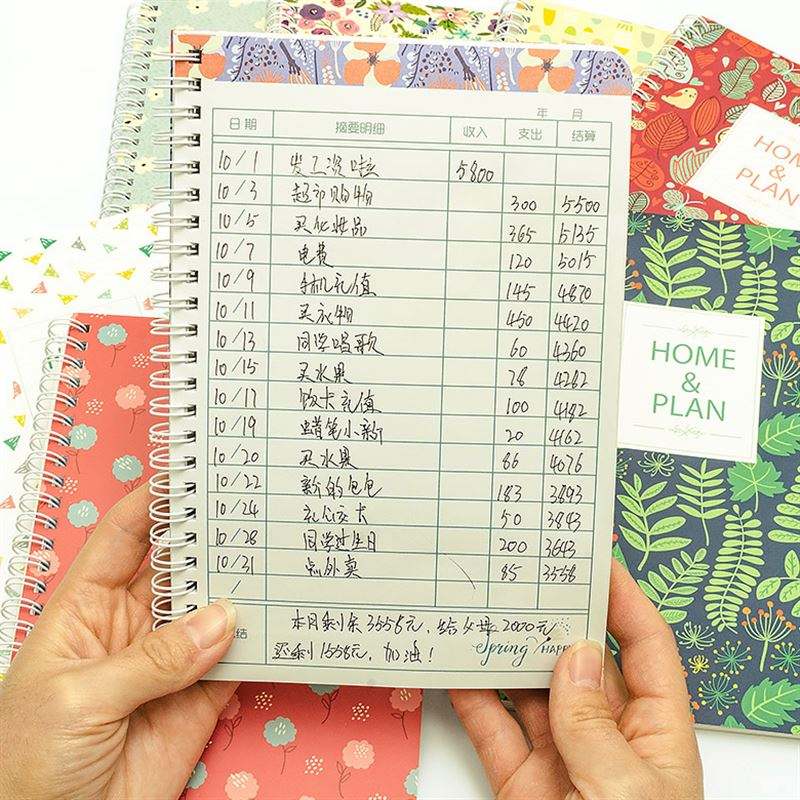 年 月
日期 摘要明细 收入 支出 结算
10/1 发工资啦 5800
10/3 超市购物 300 5500
10/5 买化妆品 365 5135
10/7 电费 120 5015
10/9 手机充值 145 4870
10/11 买衣物 450 4420
10/13 同学唱歌 60 4360
10/15 买水果 78 4282
10/17 饭卡充值 100 4182
10/19 蜡笔小新 20 4162
10/20 买水果 86 4076
10/22 新的包包 183 3893
10/24 卡 50 3843
10/28 同学过生日 200 3643
10/31 点外卖 85 3558
/
结 本月剩余3558元,给父母2000元
还剩1558元,加油!
Spring HAPP
HOME
&
PLAN
HOME
&
PLAN